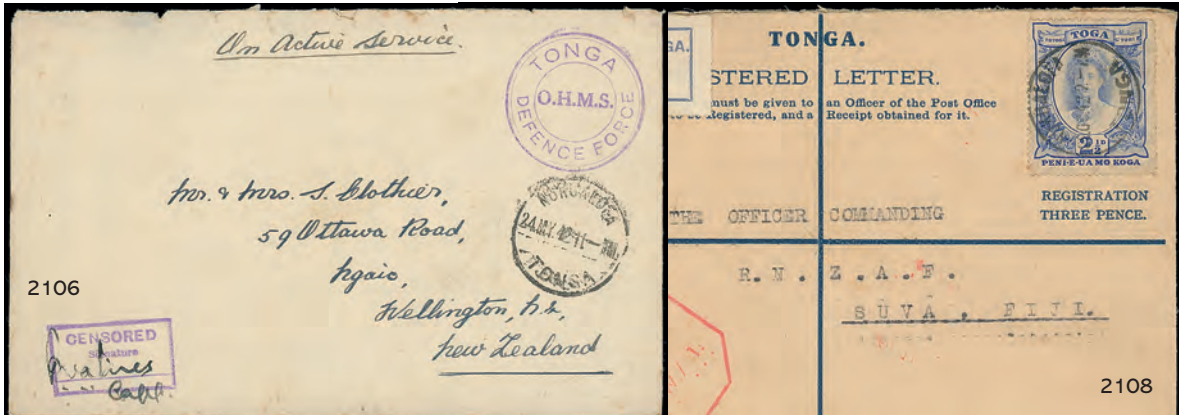 On Active Service.
TONGA
O.H.M.S.
DEFENCE FORCE
Mr. & Mrs. S. Clothier,
59 Ottawa Road,
Ngaio,
Wellington, N.2,
New Zealand
NUKUALOFA
24 MY. 42 11 —
TONGA
2106
CENSORED
Signature
Capt.
GA.
TONGA.
STERED LETTER.
must be given to an Officer of the Post Office
to be Registered, and a Receipt obtained for it.
TOGA
2½D
PENI-E-UA MO KOGA
REGISTRATION
THREE PENCE.
THE OFFICER COMMANDING
R.N.Z.A.F.
SUVA, FIJI.
2108